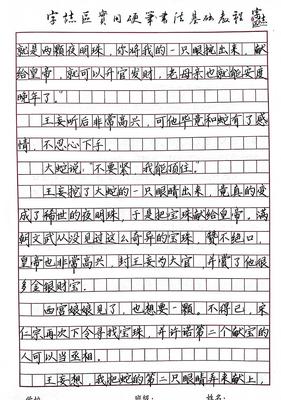 字慧區實用硬筆書法基础教程
就是两颗夜明珠，你将我的一只眼挖出来，献
给皇帝，就可以升官发财，老母亲也就能安度
晚年了。"
王妄听后非常高兴，可他毕竟和蛇有了感
情，不忍心下手。
大蛇说："不要紧，我能顶住。"
王妄挖了大蛇的一只眼睛出来，竟真的变
成了稀世的夜明珠，于是把宝珠献给皇帝，满
朝文武从没见过这么奇异的宝珠，赞不绝口，
皇帝也非常高兴，封王妄为大官，并赏了他很
多金银财宝。
西宫娘娘见了，也想要一颗。不得已，宋
仁宗再次下令寻找宝珠，并许诺第二个献宝的
人可以当丞相。
王妄想，我把蛇的第二只眼睛弄来献上，